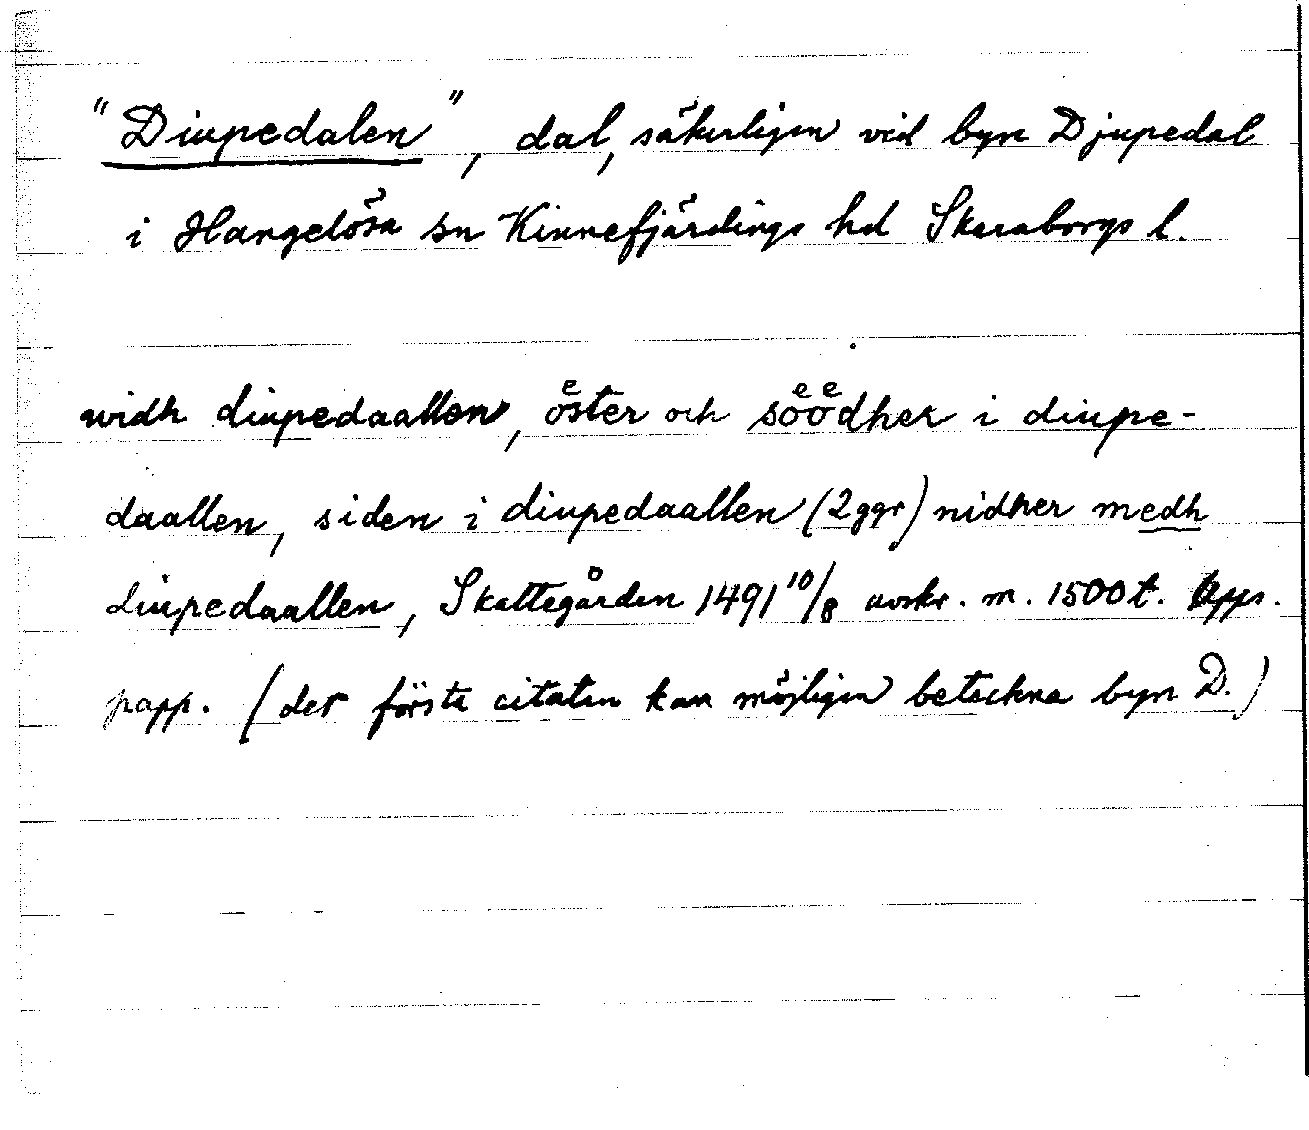 "Diupedalen", dal, säkerligen vid byn Djupedal
i Hangelösa sn Kinnefjärdings hd Skaraborgs l.
widh diupedaallen, oͤster och soͤoͤdher i diupe-
daallen, siden i diupedaallen (2 ggr) nidher medh
diupedaallen, Skattegården 1491 10/8 avskr. m. 1500 t. Upps.
papp. (det första citaten kan möjligen beteckna byn D.)